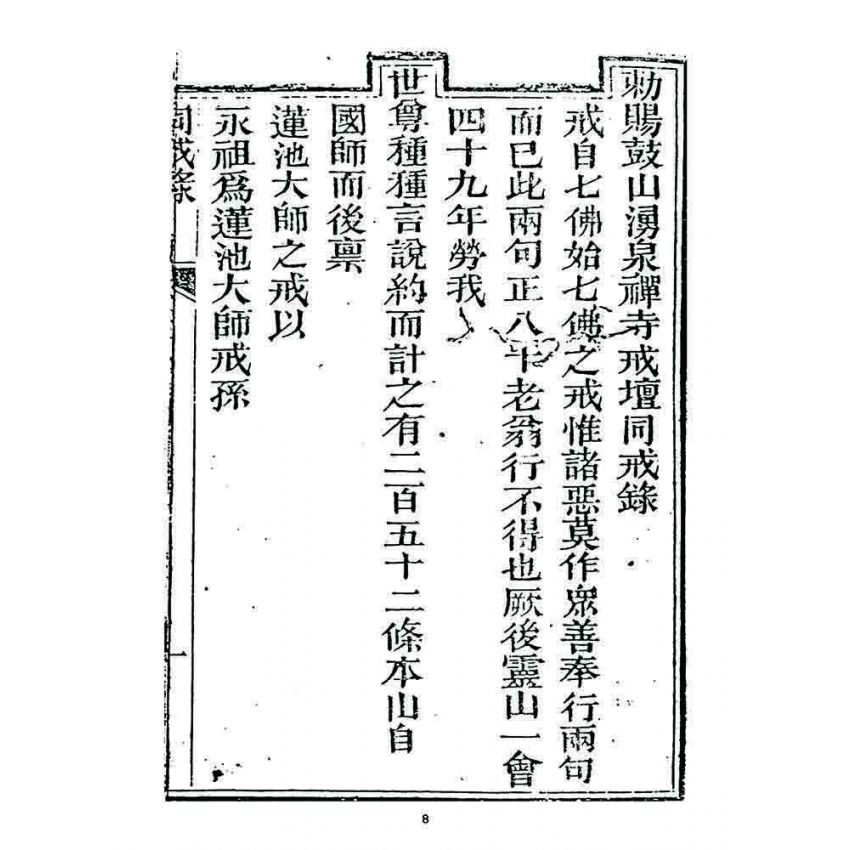 勅賜鼓山湧泉禪寺戒壇同戒錄
戒自七佛始七佛之戒惟諸惡莫作衆善奉行兩句
而已此兩句正八十老翁行不得也厥後靈山一會
四十九年勞我
世尊種種言說約而計之有二百五十二條本山自
國師而後稟
蓮池大師之戒以
永祖爲蓮池大師戒孫
同戒錄
一
8